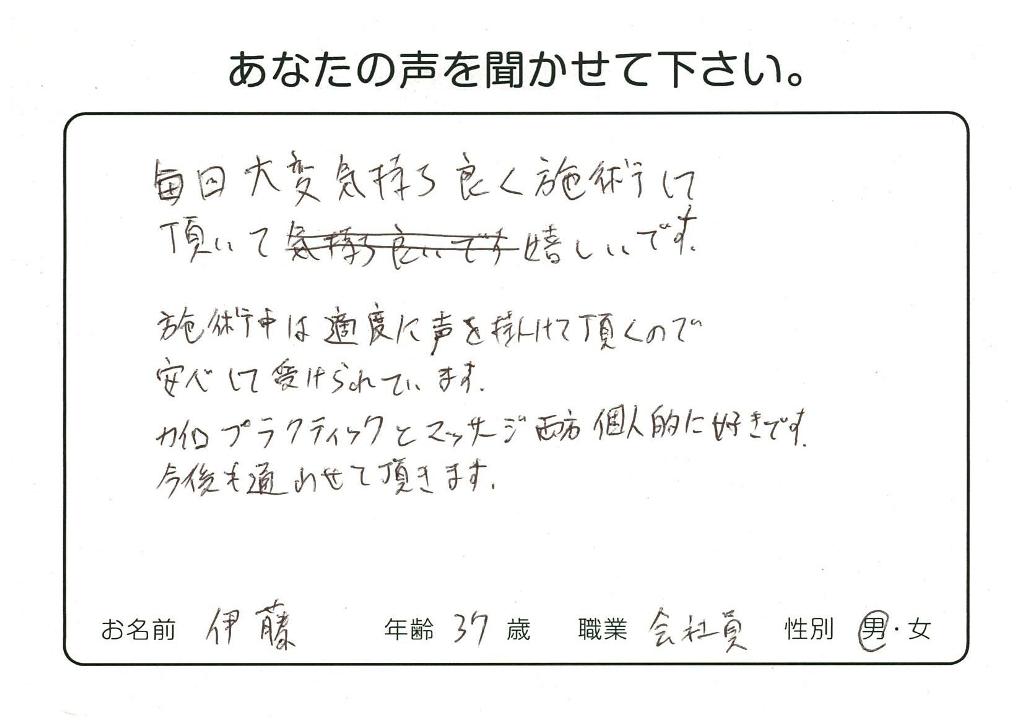 あなたの声を聞かせて下さい。
毎回大変気持ち良く施術して
頂いて気持ち良いです嬉しいです。
施術中は適度に声を掛けて頂くので
安心して受けられています。
カイロプラクティックとマッサージ両方個人的に好きです。
今後も通わせて頂きます。
お名前 伊藤 年齢 37 歳 職業 会社員 性別 男・女